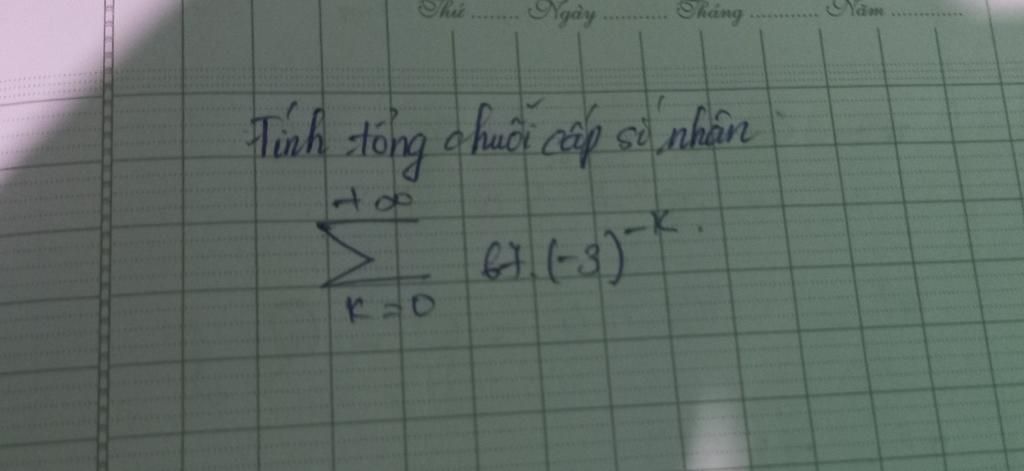 Thứ ........ Ngày ........... Tháng ............ Năm .............
Tính tổng chuỗi cấp số nhân
+∞
∑ 67.(-3)^{-K}.
K=0